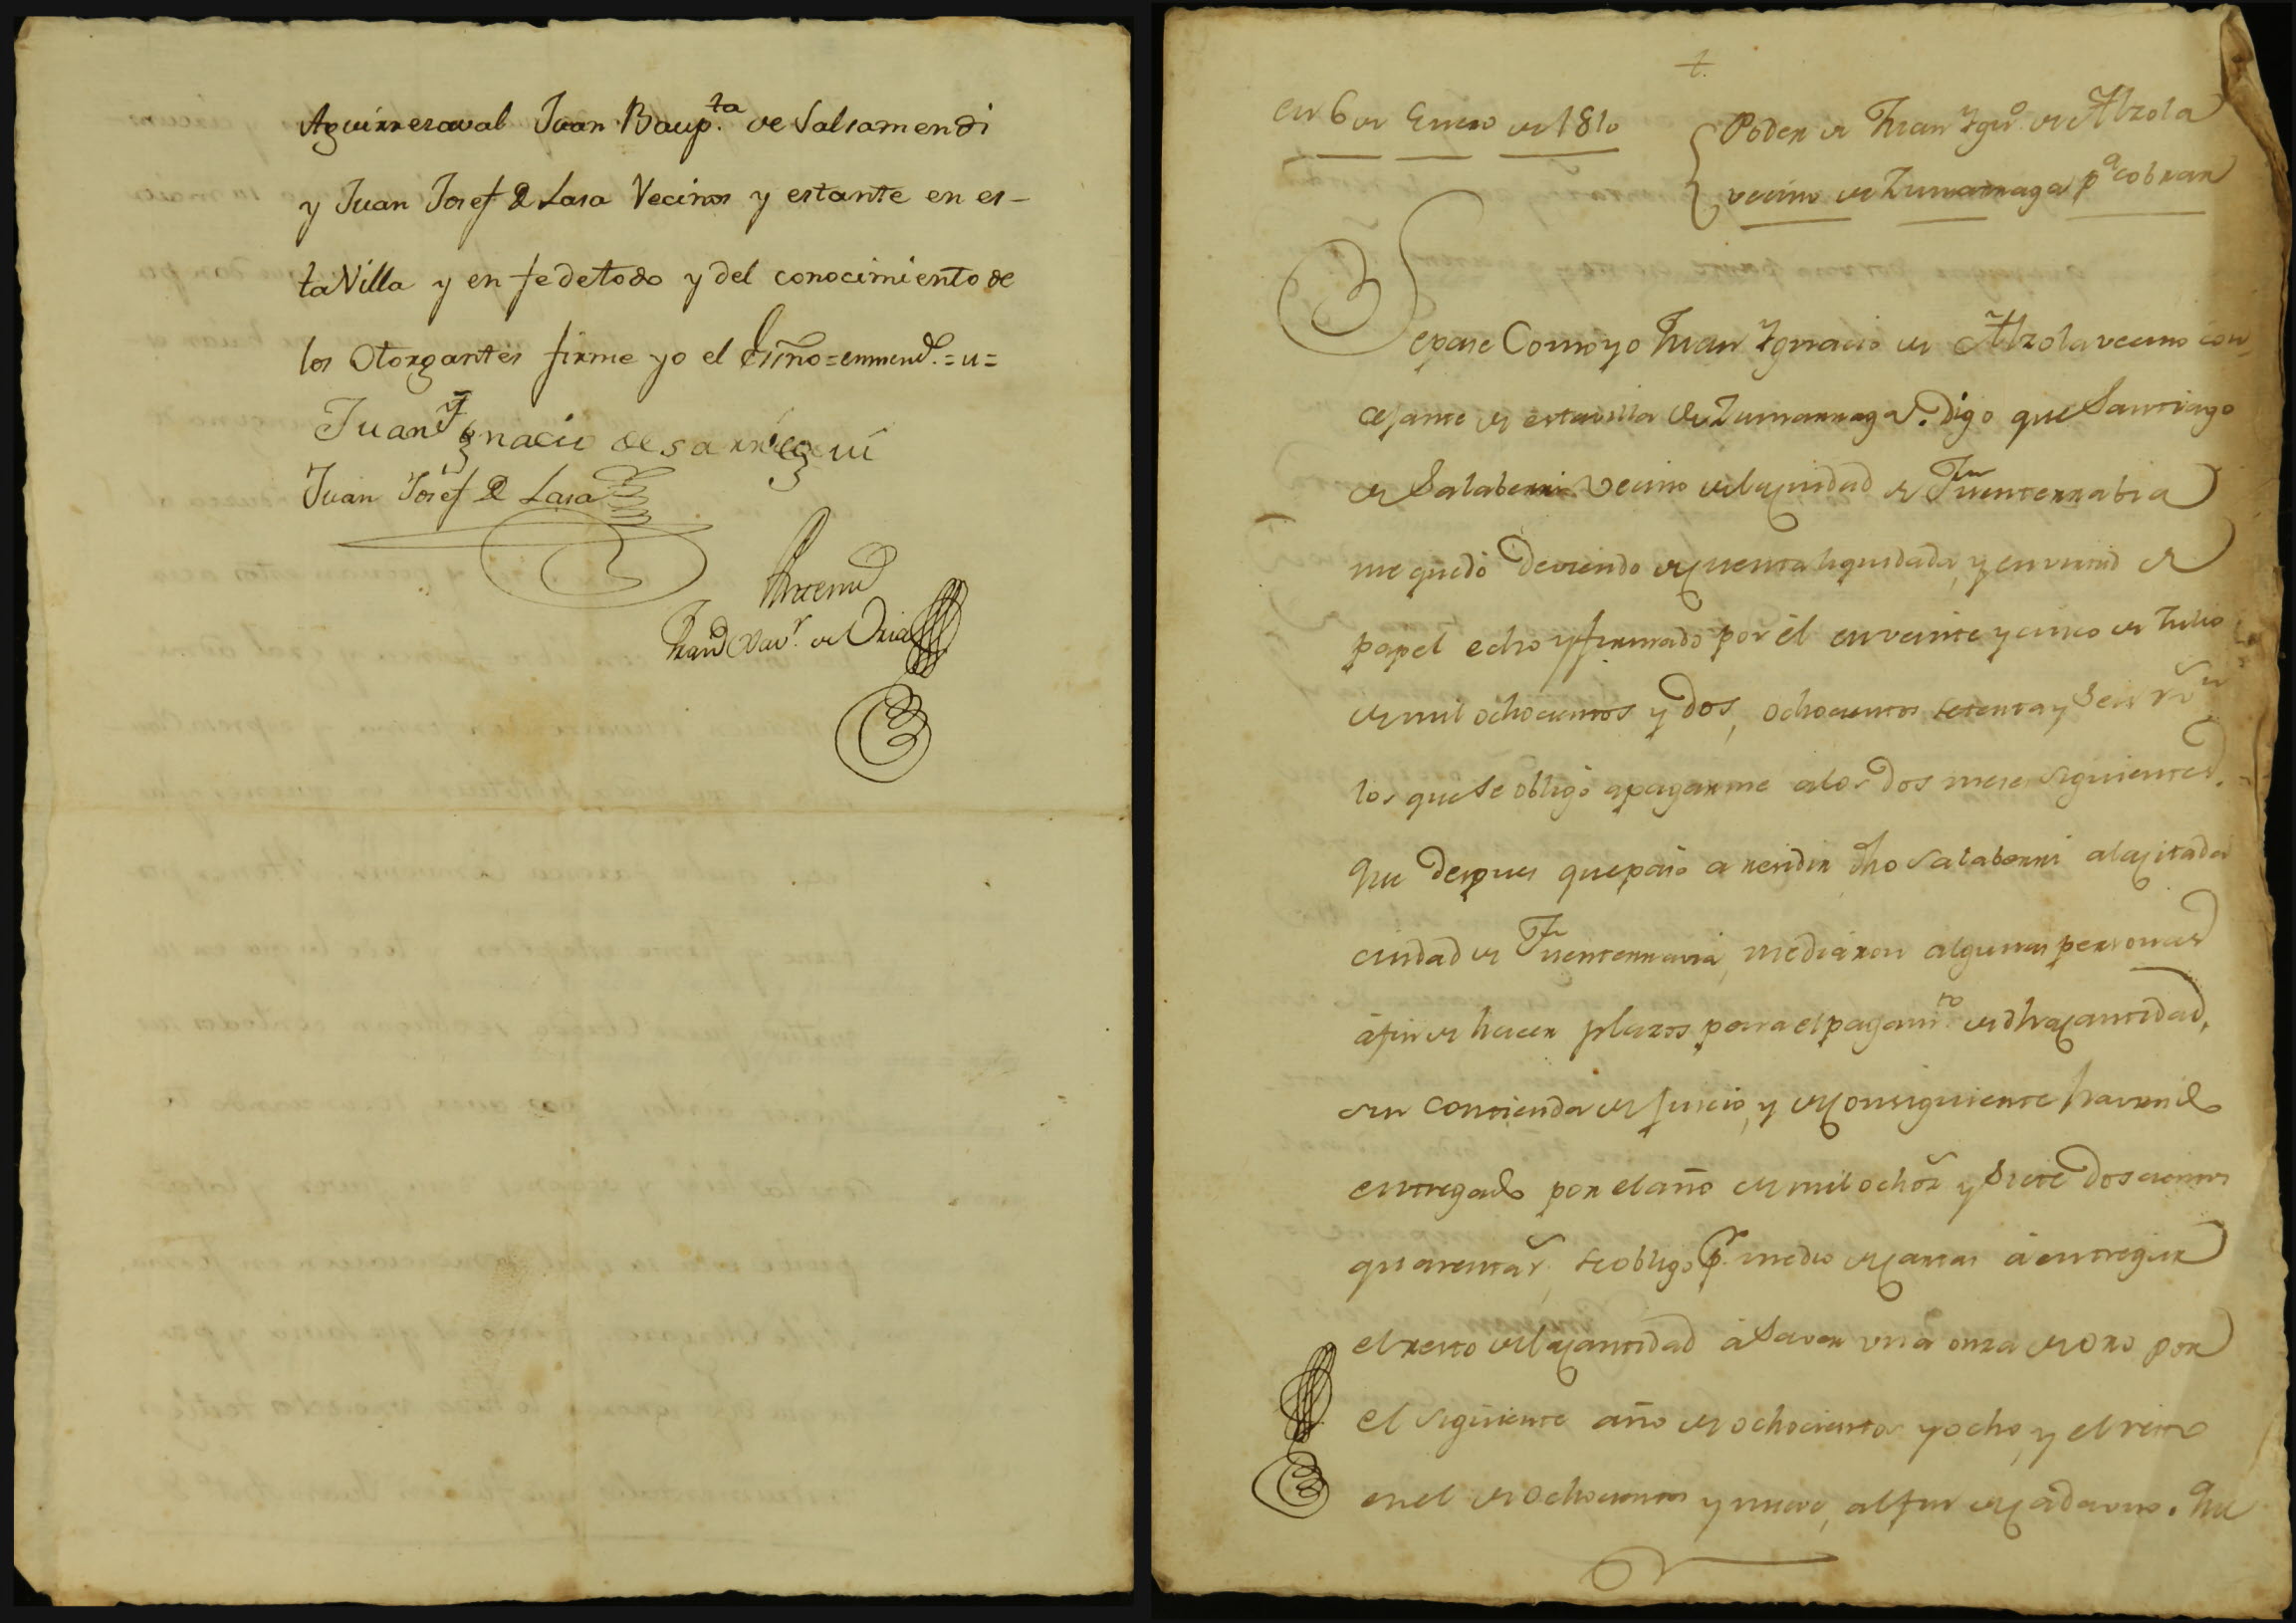 Aguirresaval Juan Baup.ta de Salsamendi
y Juan Josef de Lasa Vecinos y estante en es-
ta Villa y en fe de todo y del conocimiento de
los Otorgantes firme yo el Essno = enmend.º = u =
Juan Ygnacio de sarriegui
Juan Josef de Lasa
Antemi
Fran.co Xav.r de Oria
t.
En 6 de Enero de 1810
Poder de Juan Ygn.º de Alzola
vecino de Zumarraga p.a cobrar
Sepase Como yo Juan Ygnacio de Alzola vecino con-
cejante de esta villa de Zumarraga. Digo que Santiago
de Salaberri vecino de la ciudad de Fuenterrabia
me quedò deviendo de cuenta liquidada, y en virtud de
papel echo y firmado por èl en veinte y cinco de Julio
de mil ochocientos y dos, ochocientos setenta y seis r.s v.n
los que se obligò a pagarme a los dos meses siguientes.
Que despues que pasò a residir dho Salaberri a la citada
ciudad de Fuenterravia, mediaron algunas personas
à fin de hacer plazos para el pagam.to de dha cantidad,
sin contienda de juicio, y de consiguiente haviendo
entregado por el año de mil ochos y siete doscientos
quarenta r.s se obligo p.r medio de cartas à entregar
el resto de la cantidad à saver una onza de oro por
el siguiente año de ochocientos y ocho, y el resto
en el de ochocientos y nueve, al fin de cada uno. Que